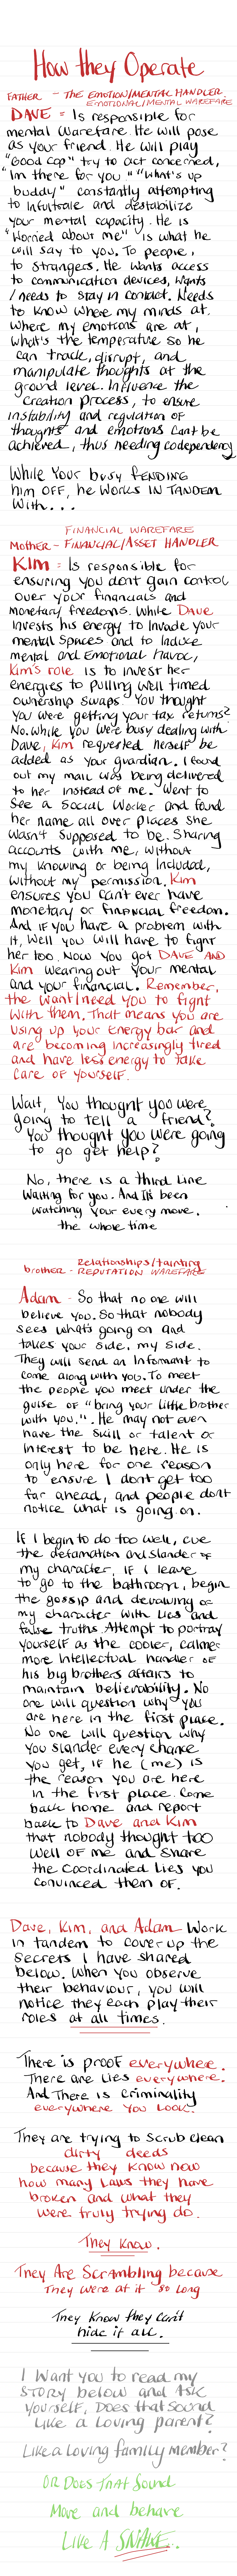 How they Operate
FATHER - THE EMOTION/MENTAL HANDLER.
EMOTIONAL/MENTAL WAREFARE
DAVE = Is responsible for
mental warefare. He will pose
as your friend. He will play
"Good cop" try to act concerned,
"Im there for you" "What's up
buddy" constantly attempting
to infultrate and destabilize
your mental capacity. He is
"Worried about me" is what he
will say to you. To people,
to strangers. He wants access
to communication devices, wants
/needs to stay in contact. Needs
to know where my minds at.
Where my emotions are at,
what's the temperature so he
can track, disrupt, and
manipulate thoughts at the
ground level. Influence the
creation process, to ensure
instability and regulation of
thoughts and emotions cant be
achieved, thus needing codependency
While Your busy FENDING
him OFF, he WORKS IN TANDEM
With...
FINANCIAL WAREFARE
Mother - FINANCIAL/ASSET HANDLER
Kim = Is responsible for
ensuring you dont gain control
over your financials and
monetary freedoms. While DAVE
invests his energy to invade your
mental spaces and to induce
mental and Emotional Havoc,
Kim's role is to invest her
energies to pulling well timed
ownership swaps. You thought
you were getting your tax returns?
No. While you were busy dealing with
Dave, Kim requested herself be
added as your guardian. I found
out my mail was being delivered
to her instead of me. Went to
see a Social Worker and found
her name all over places she
wasn't supposed to be. Sharing
accounts with me, without
my knowing or being included,
without my permission. Kim
ensures you can't ever have
monetary or financial freedom.
And if you have a problem with
it, well you will have to fight
her too. Now you got DAVE AND
Kim wearing out your mental
and your financial. Remember,
the want/need you to fight
with them. That means you are
using up your energy bar and
are becoming increasingly tired
and have less energy to take
care of yourself.
Wait, you thought you were
going to tell a friend?
You thought you were going
to go get help?
No, there is a third line
waiting for you. And its been
watching your every move.
the whole time
Relationships/tainting
brother - REPUTATION WAREFARE
Adam - So that no one will
believe you. So that nobody
sees whats going on and
takes your side, my side.
They will send an informant to
come along with you. To meet
the people you meet under the
guise of "bring your little brother
with you.". He may not even
have the skill or talent or
interest to be here. He is
only here for one reason
to ensure I dont get too
far ahead, and people dont
notice what is going on.
If I begin to do too well, cue
the defamation and slander of
my character, if I leave
to go to the bathroom, begin
the gossip and derailing of
my character with lies and
false truths. Attempt to portray
yourself as the cooler, calmer
more intellectual handler of
his big brothers affairs to
maintain believability. No
one will question why you
are here in the first place.
No one will question why
you slander every chance
you get, if he (me) is
the reason you are here
in the first place. Come
back home and report
back to Dave and Kim
that nobody thought too
well of me and share
the coordinated lies you
convinced them of.
Dave, Kim, and Adam work
in tandem to cover up the
secrets I have shared
below. When you observe
their behaviour, you will
notice they each play their
roles at all times.
There is proof everywhere.
There are lies everywhere.
And there is criminality
everywhere you look.
They are trying to scrub clean
dirty deeds
because they know now
how many laws they have
broken and what they
were truly trying do.
They Know.
They Are Scrambling because
They were at it so long
They know they can't
hide it all.
I want you to read my
STORY below and ask
yourself, Does that sound
like a loving parent?
Like a loving family member?
OR Does That Sound
Move and behave
Like A SNAKE.